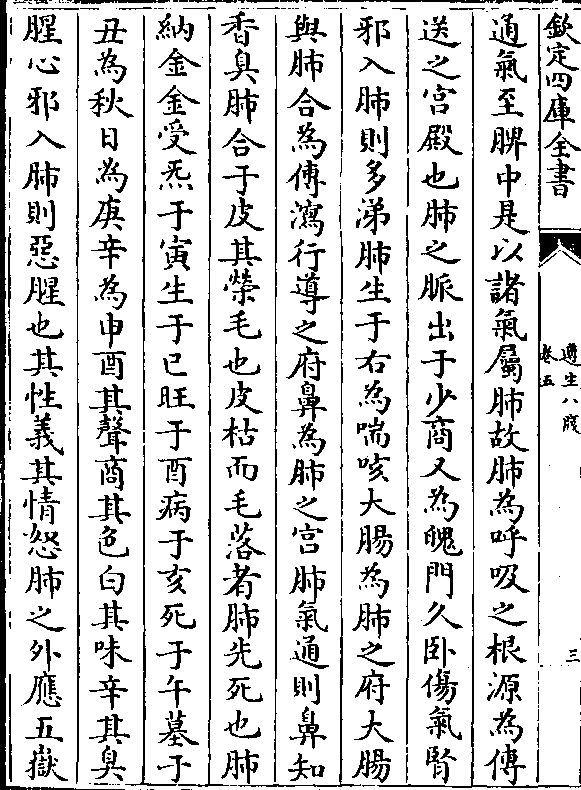 欽定四庫全書
遵生八牋
卷五
三
通氣至脾中是以諸氣屬肺故肺為呼吸之根源為傳
送之宫殿也肺之脈出于少商又為魄門久卧傷氣腎
邪入肺則多涕肺生于右為喘咳大腸為肺之府大腸
與肺合為傳瀉行導之府鼻為肺之宫肺氣通則鼻知
香臭肺合于皮其榮毛也皮枯而毛落者肺先死也肺
納金金受炁于寅生于巳旺于酉病于亥死于午墓于
丑為秋日為庚辛為申酉其聲商其色白其味辛其臭
腥心邪入肺則惡腥也其性義其情怒肺之外應五嶽